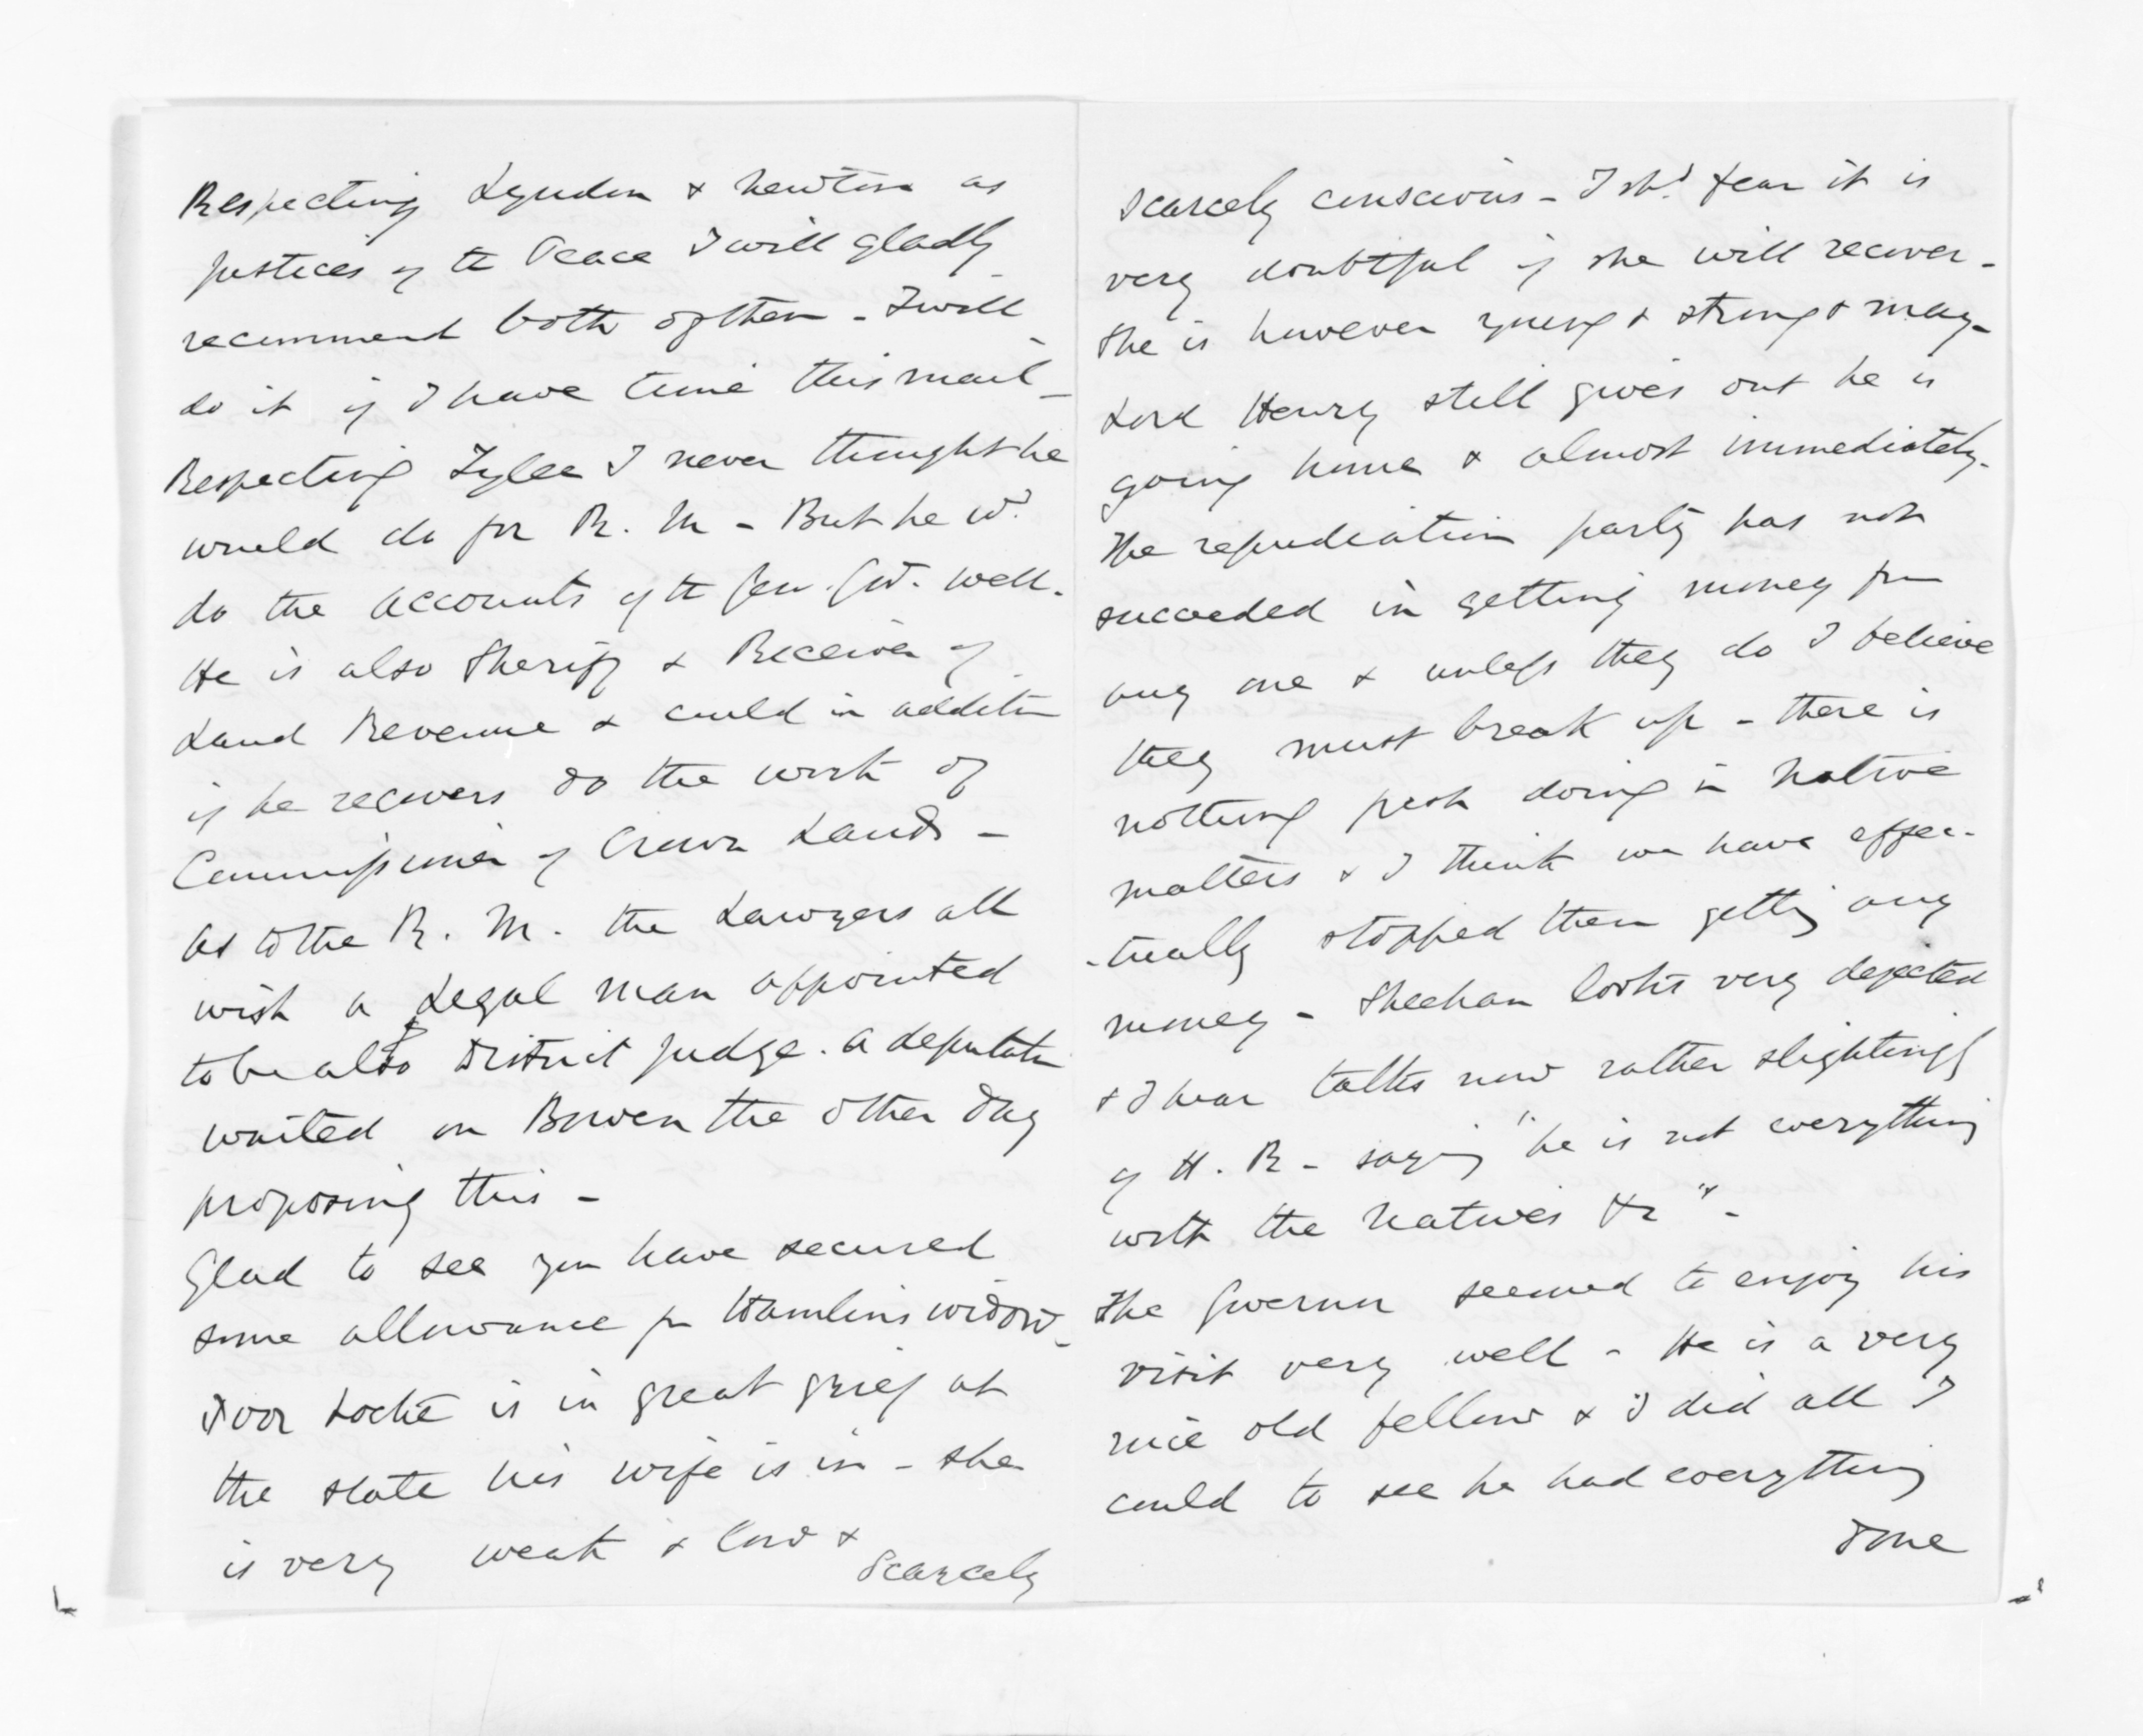 Respecting Lyndon & Newton as
Justices of the Peace I will gladly
recommend both of them - I will
do it if I have time this mail -
Respecting Tylee I never thought he
would do for R. M - But he wd.
do the accounts of the Gen. Govt. well.
He is also Sheriff & Receiver of
Land Revenue & could in addition
if he recovers do the work of
Commissioner of Crown Lands -
As to the R. M. the Lawyers all
wish a Legal man appointed
to be also District Judge. A deputation
waited on Bowen the other day
proposing this -
Glad to see you have secured
some allowance for Hamlins widow -
Poor Locke is in great grief at
the state his wife is in - she
is very weak & low &
scarcely
scarcely conscious - I shd. fear it is
very doubtful if she will recover -
She is however young & strong & may -
Lord Henry still gives out he is
going home & almost immediately.
The repudiation party has not
succeeded in getting money from
any one & unless they do I believe
they must break up - there is
nothing fresh doing in Native
matters & I think we have effec-
-tually stopped them getting any
money - Sheehan looks very dejected
& I hear talks now rather slightingly
of H. R - saying "he is not everything
with the Natives &c" -
The Governor seemed to enjoy his
visit very well - He is a very
nice old fellow & I did all I
could to see he had everything
done